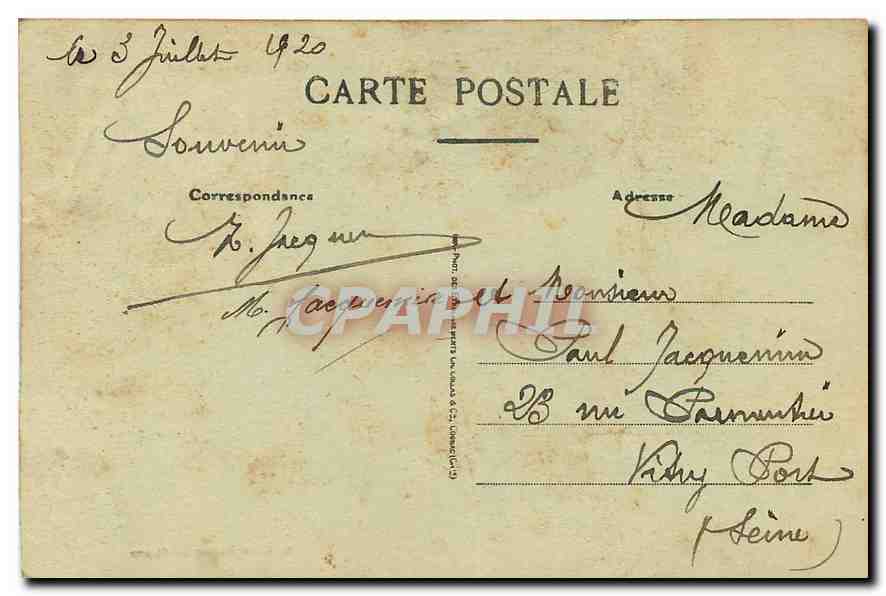 le 3 Juillet 1920
CARTE POSTALE
Souvenir
Correspondance
Adresse
Madame
M. Jacquemin et Monsieur
Paul Jacquemin
23 rue Parmentier
Vitry Port
(Seine)
CPAPHIL